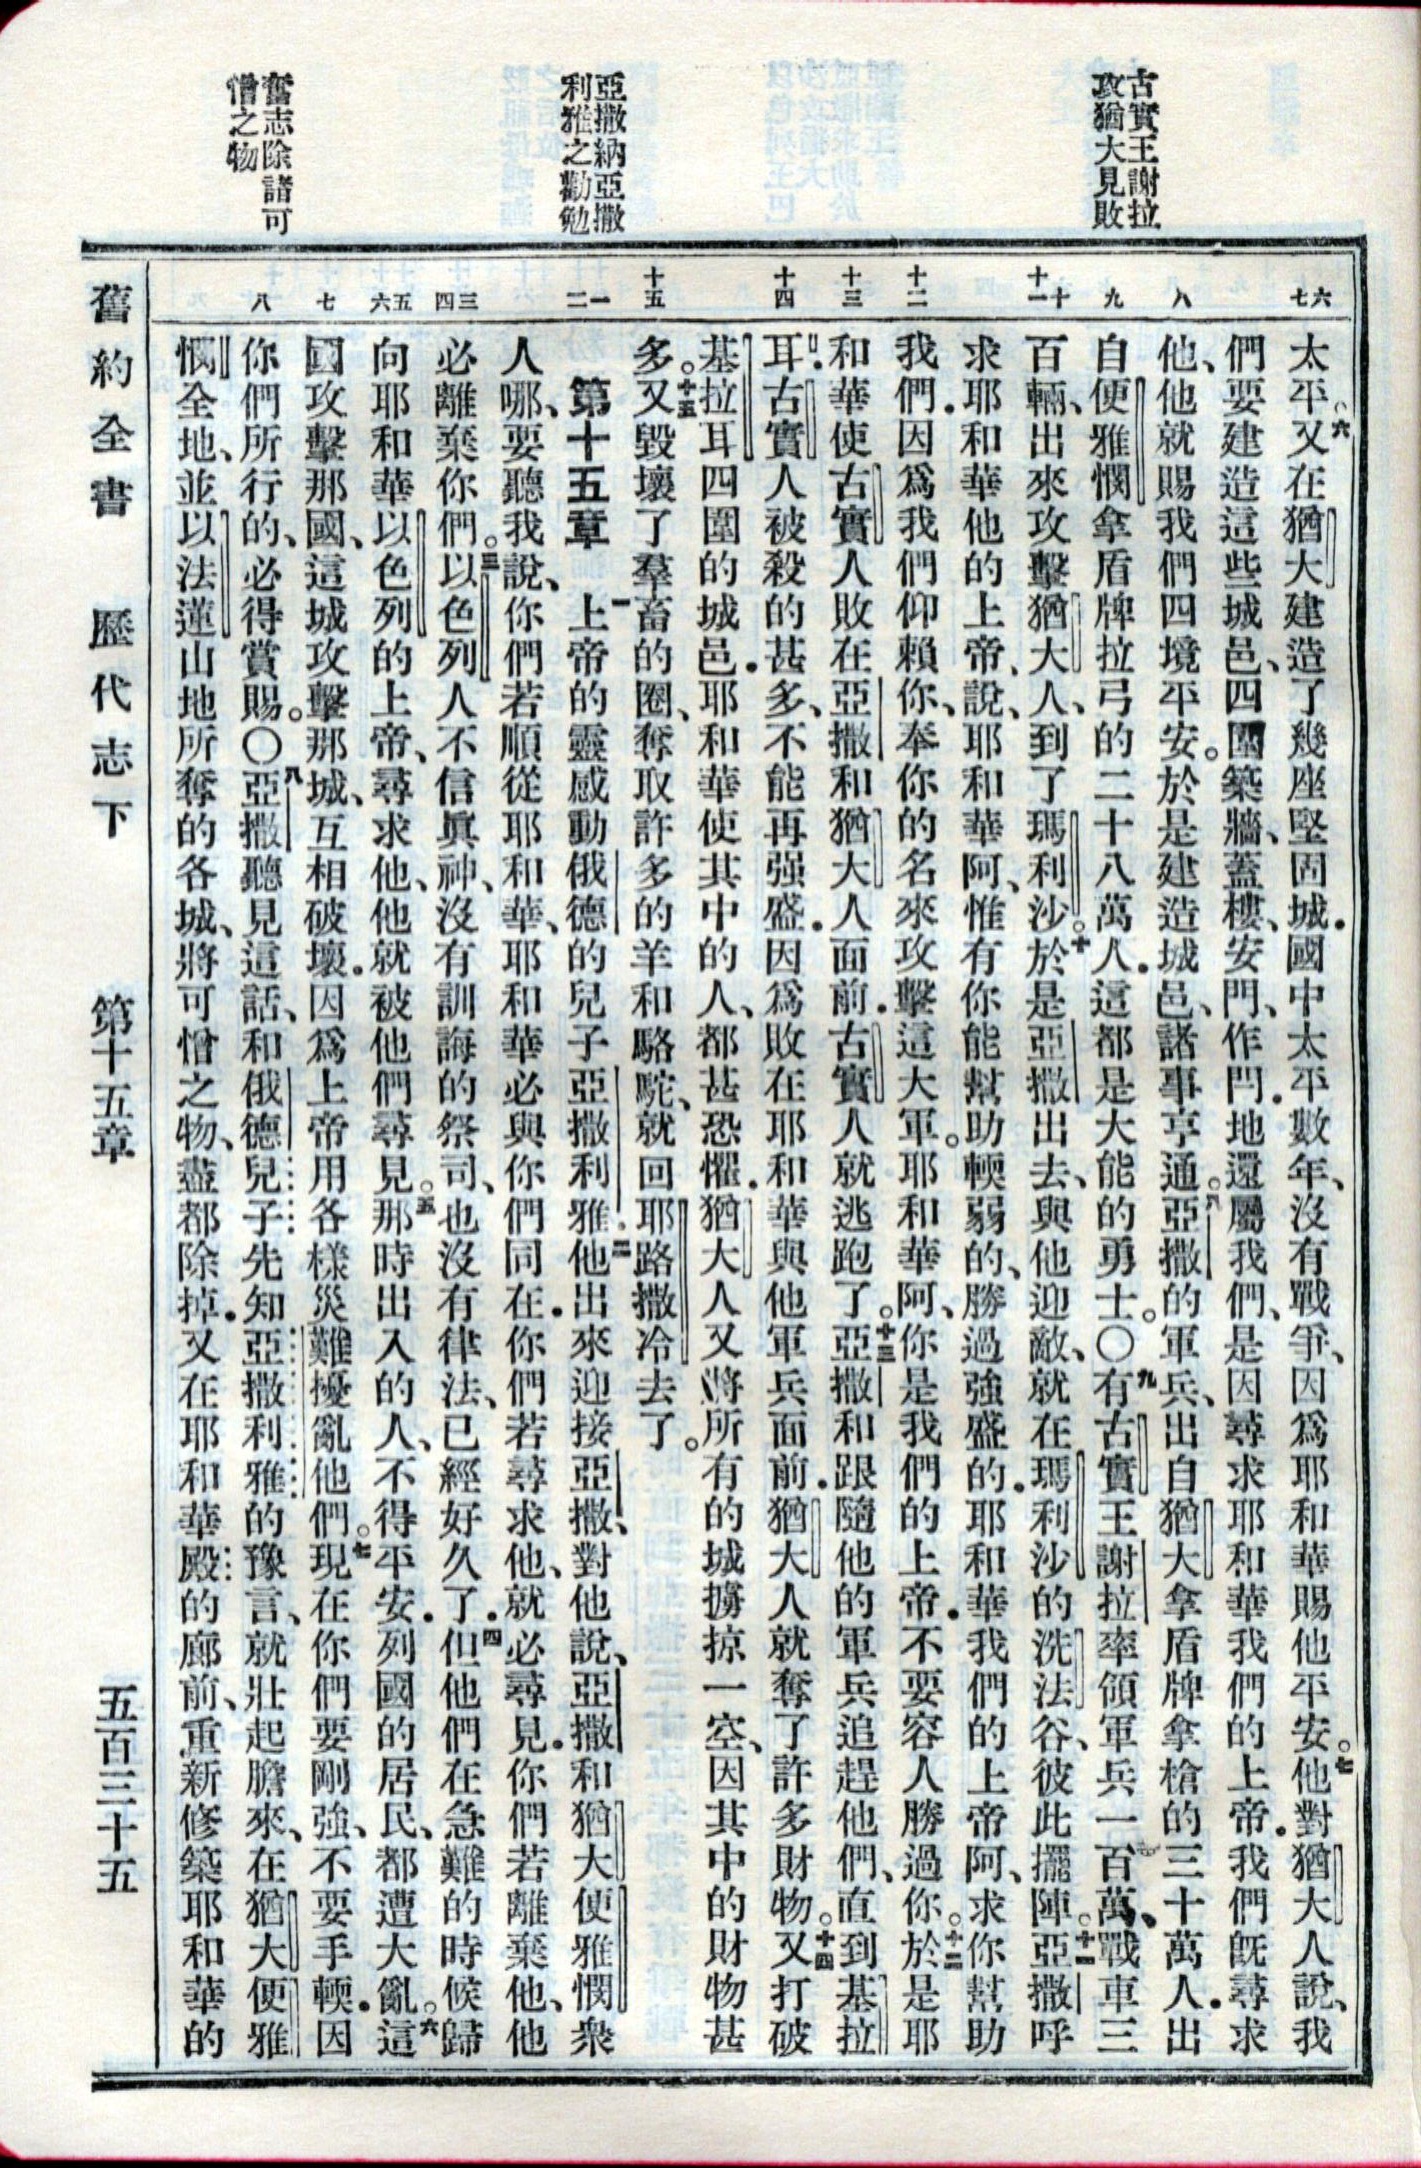 古實王謝拉
攻猶大見敗
亞撒納亞撒
利雅之勸勉
奮志除諸可
憎之物
六
七
八
九
十
十一
十二
十三
十四
十五
一
二
三
四
五
六
七
八
太平。六又在猶大建造了幾座堅固城．國中太平數年、沒有戰爭、因爲耶和華賜他平安。七他對猶大人說、我
們要建造這些城邑、四圍築牆、蓋樓、安門、作閂．地還屬我們、是因尋求耶和華我們的上帝．我們既尋求
他、他就賜我們四境平安。於是建造城邑、諸事亨通。八亞撒的軍兵、出自猶大拿盾牌拿槍的三十萬人．出
自便雅憫拿盾牌拉弓的二十八萬人．這都是大能的勇士。〇九有古實王謝拉率領軍兵一百萬、戰車三
百輛、出來攻擊猶大人、到了瑪利沙。十於是亞撒出去、與他迎敵、就在瑪利沙的洗法谷、彼此擺陣。十一亞撒呼
求耶和華他的上帝、說、耶和華阿、惟有你能幫助輭弱的、勝過強盛的．耶和華我們的上帝阿、求你幫助
我們．因爲我們仰賴你、奉你的名來攻擊這大軍。耶和華阿、你是我們的上帝．不要容人勝過你。十二於是耶
和華使古實人敗在亞撒和猶大人面前．古實人就逃跑了。十三亞撒和跟隨他的軍兵追趕他們、直到基拉
耳．古實人被殺的甚多、不能再强盛．因爲敗在耶和華與他軍兵面前．猶大人就奪了許多財物。十四又打破
基拉耳四圍的城邑．耶和華使其中的人、都甚恐懼．猶大人又將所有的城擄掠一空、因其中的財物甚
多。十五又毀壞了羣畜的圈、奪取許多的羊和駱駝、就回耶路撒冷去了。
第十五章　一上帝的靈感動俄德的兒子亞撒利雅．二他出來迎接亞撒、對他說、亞撒和猶大便雅憫衆
人哪、要聽我說、你們若順從耶和華、耶和華必與你們同在．你們若尋求他、就必尋見．你們若離棄他、他
必離棄你們。三以色列人不信眞神、沒有訓誨的祭司、也沒有律法、已經好久了．四但他們在急難的時候歸
向耶和華以色列的上帝、尋求他、他就被他們尋見。五那時出入的人、不得平安．列國的居民、都遭大亂。六這
國攻擊那國、這城攻擊那城、互相破壞．因爲上帝用各樣災難擾亂他們。七現在你們要剛強、不要手輭．因
你們所行的、必得賞賜。〇八亞撒聽見這話、和俄德兒子先知亞撒利雅的豫言、就壯起膽來、在猶大便雅
憫全地、並以法蓮山地所奪的各城、將可憎之物、盡都除掉．又在耶和華殿的廊前、重新修築耶和華的
舊約全書　歷代志下　第十五章　五百三十五